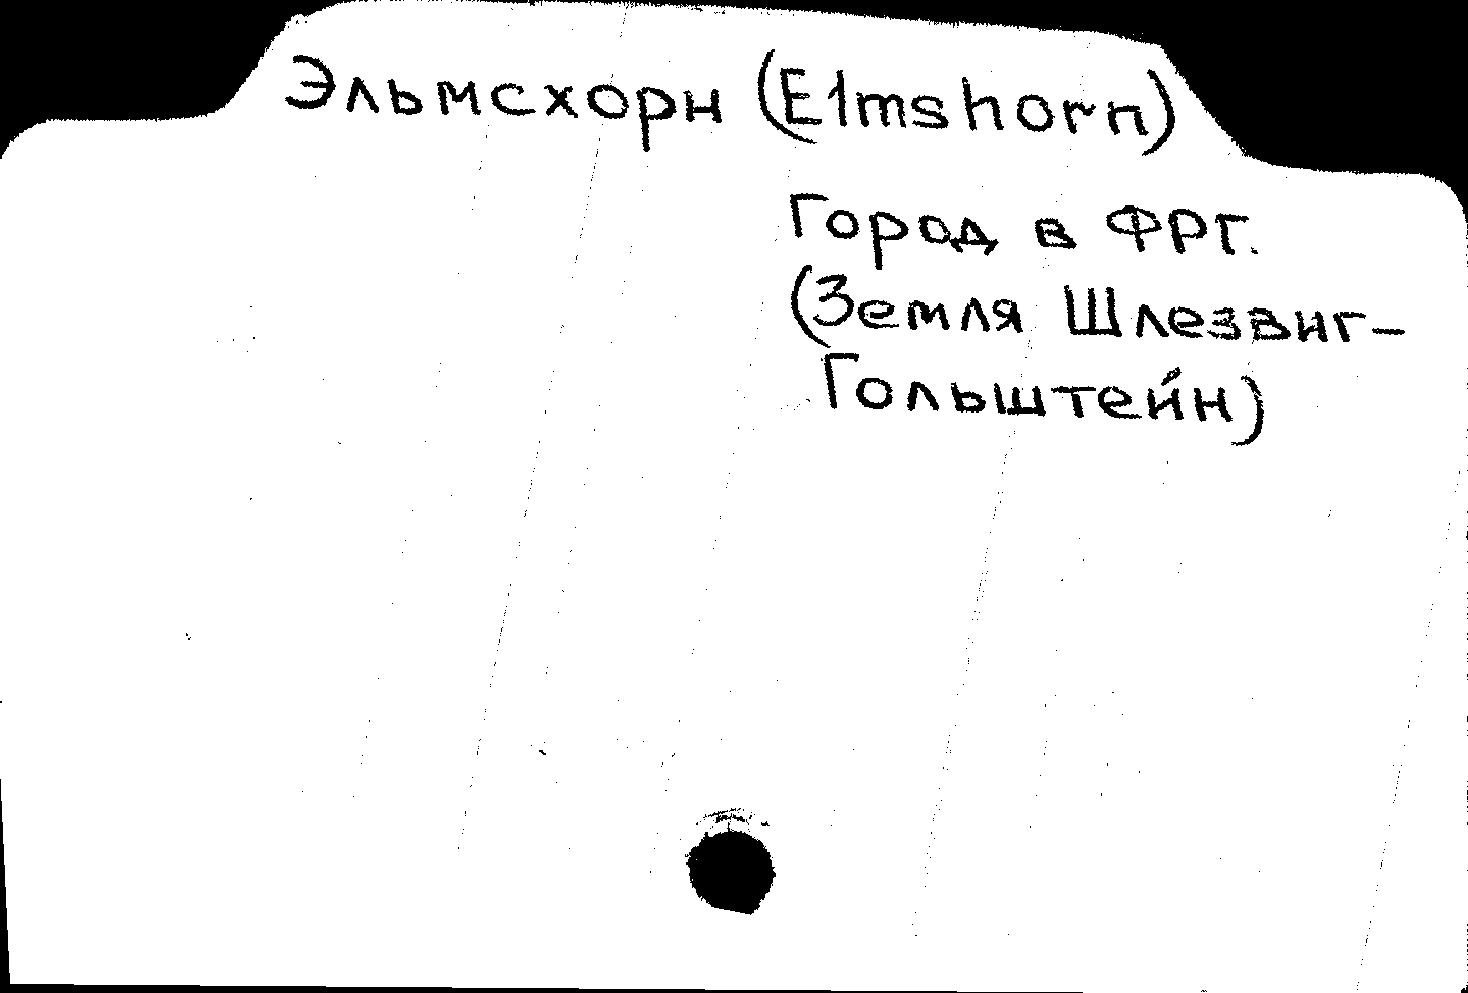 Эльмсхорн (Elmshorn)
Город в ФРГ.
(Земля Шлезвиг-
Гольштейн)